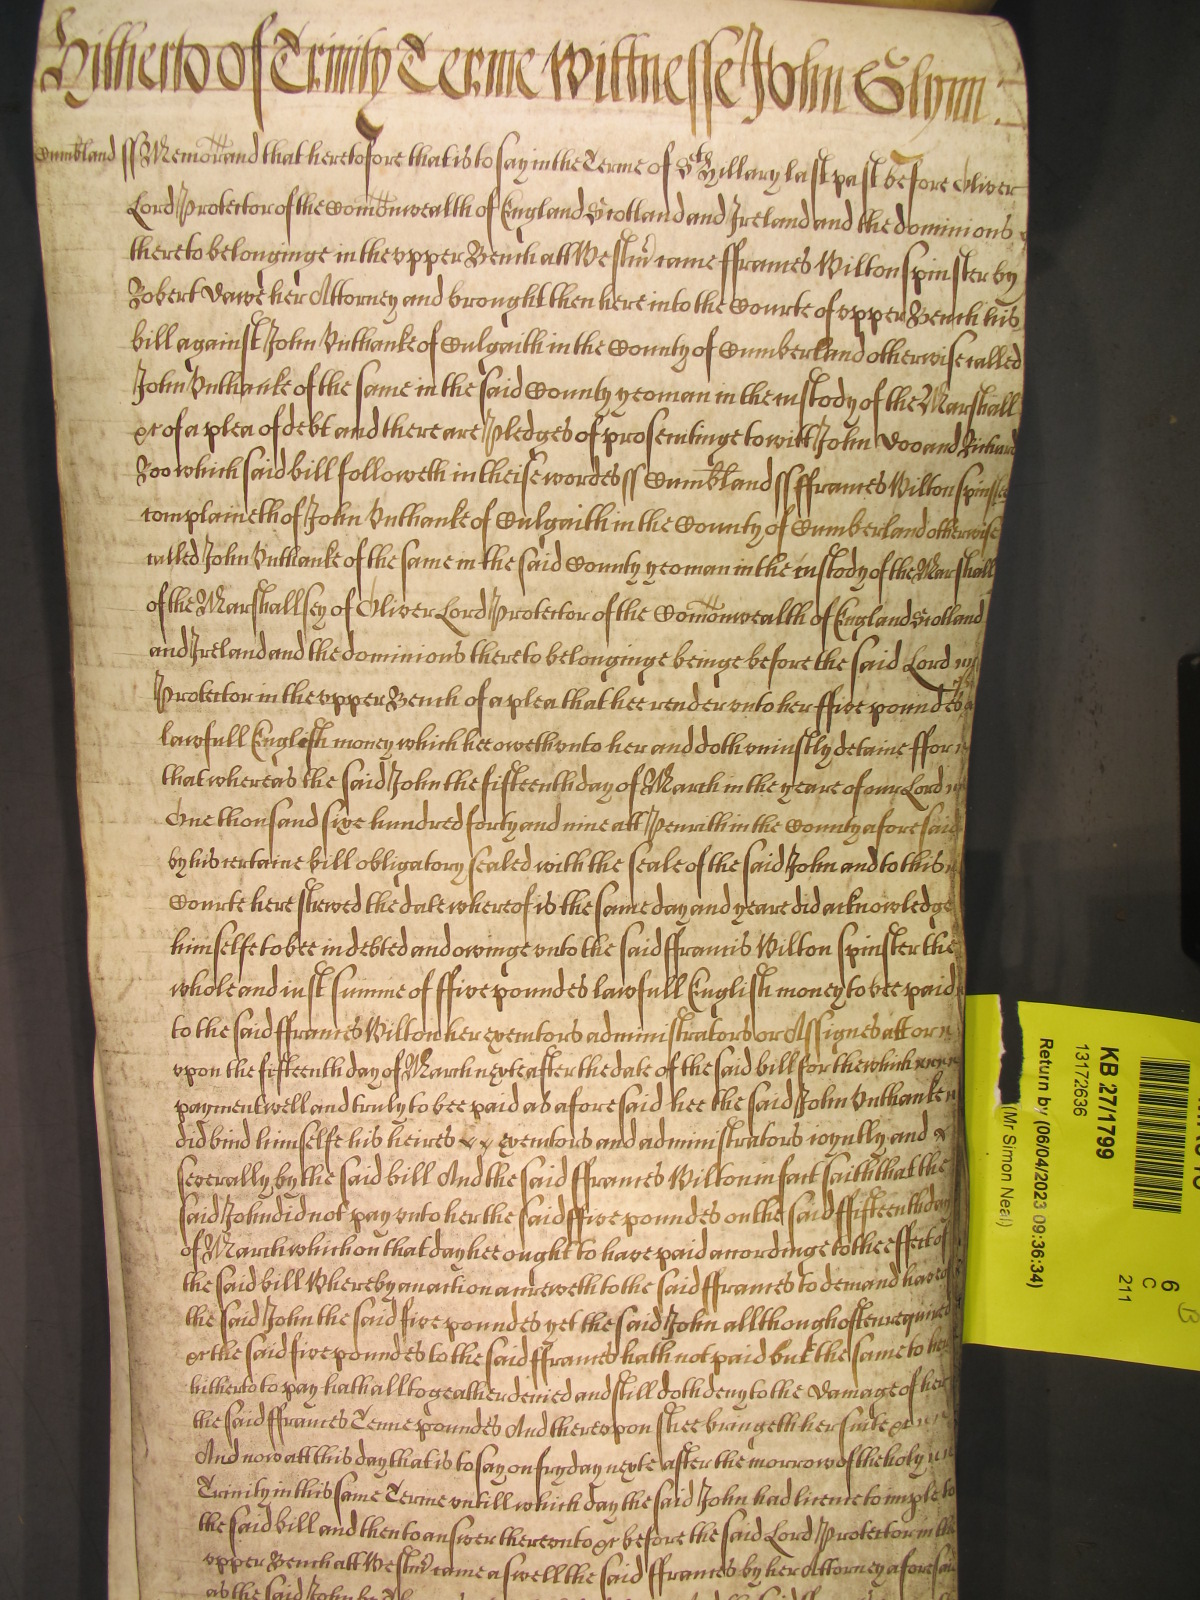 Hitherto of Trinity Terme Wittnesse John Glynn:
Cumbland ss Memorand that heretofore that is to say in the Terme of St Hillary last past before Oliver
Lord Protector of the Comonwealth of England Scotland and Ireland and the dominions
thereto belonginge in the vpper Bench att Westmr came ffrances Wilton spinster by
Robert Dawe her Attorney and brought then here into the Courte of vpper Bench his
bill against John Vnthanke of Culgaith in the County of Cumberland otherwise called
John Vnthanke of the same in the said County yeoman in the custody of the Marshall
&c of a plea of debt and there are Pledges of prosecutinge to witt John Doo and Richard
Roo which said bill followeth in theise wordes ss Cumbland ss ffrances Wilton spinster
complaineth of John Vnthanke of Culgaith in the County of Cumberland otherwise
called John Vnthanke of the same in the said County yeoman in the custody of the Marshall
of the Marshallsey of Oliver Lord Protector of the Comonwealth of England Scotland
and Ireland and the dominions thereto belonginge beinge before the said Lord
Protector in the vpper Bench of a plea that hee render vnto her ffive poundes
lawfull English money which hee oweth vnto her and doth vniustly detaine ffor
that whereas the said John the fifteenth day of March in the yeare of our Lord
One thousand sixe hundred forty and nine att Penrith in the County aforesaid
by his certaine bill obligatory sealed with the seale of the said John and to this
Courte here shewed the date whereof is the same day and yeare did acknowledge
himselfe to bee indebted and owinge vnto the said ffrancis Wilton spinster the
whole and iust summe of ffive poundes lawfull English money to bee paid
to the said ffrances Wilton her executors administrators or Assignes att or
vpon the fifteenth day of March nexte after the date of the said bill for the which
payment well and truly to bee paid as aforesaid hee the said John Vnthanke
did bind himselfe his heires executors and administrators ioyntly and
severally by the said bill And the said ffrances Wilton in fact saith that the
said John did not pay vnto her the said ffive poundes on the said ffifteenth day
of March which on that day hee ought to have paid accordinge to the effect of
the said bill Whereby an action accreweth to the said ffrances to demand have
the said John the said five poundes yet the said John allthough often required
&c the said five poundes to the said ffrances hath not paid but the same to her
hitherto to pay hath alltogeather denied and still doth deny to the Damage of her
the said ffrances Tenne poundes And therevpon shee bringeth her suite &c
And now att this day that is to say on fryday nexte after the morrow of the holy
Trinity in this same Terme vntill which day the said John had licence to imple to
the said bill and then to answer therevnto &c before the said Lord Protector in the
vpper Bench att Westmr came aswell the said ffrances by her Attorney aforesaid
as the said John by
KB 27/1799
13172636
Return by (06/04/2023 09:36:34)
(Mr Simon Neal)
6
C
211